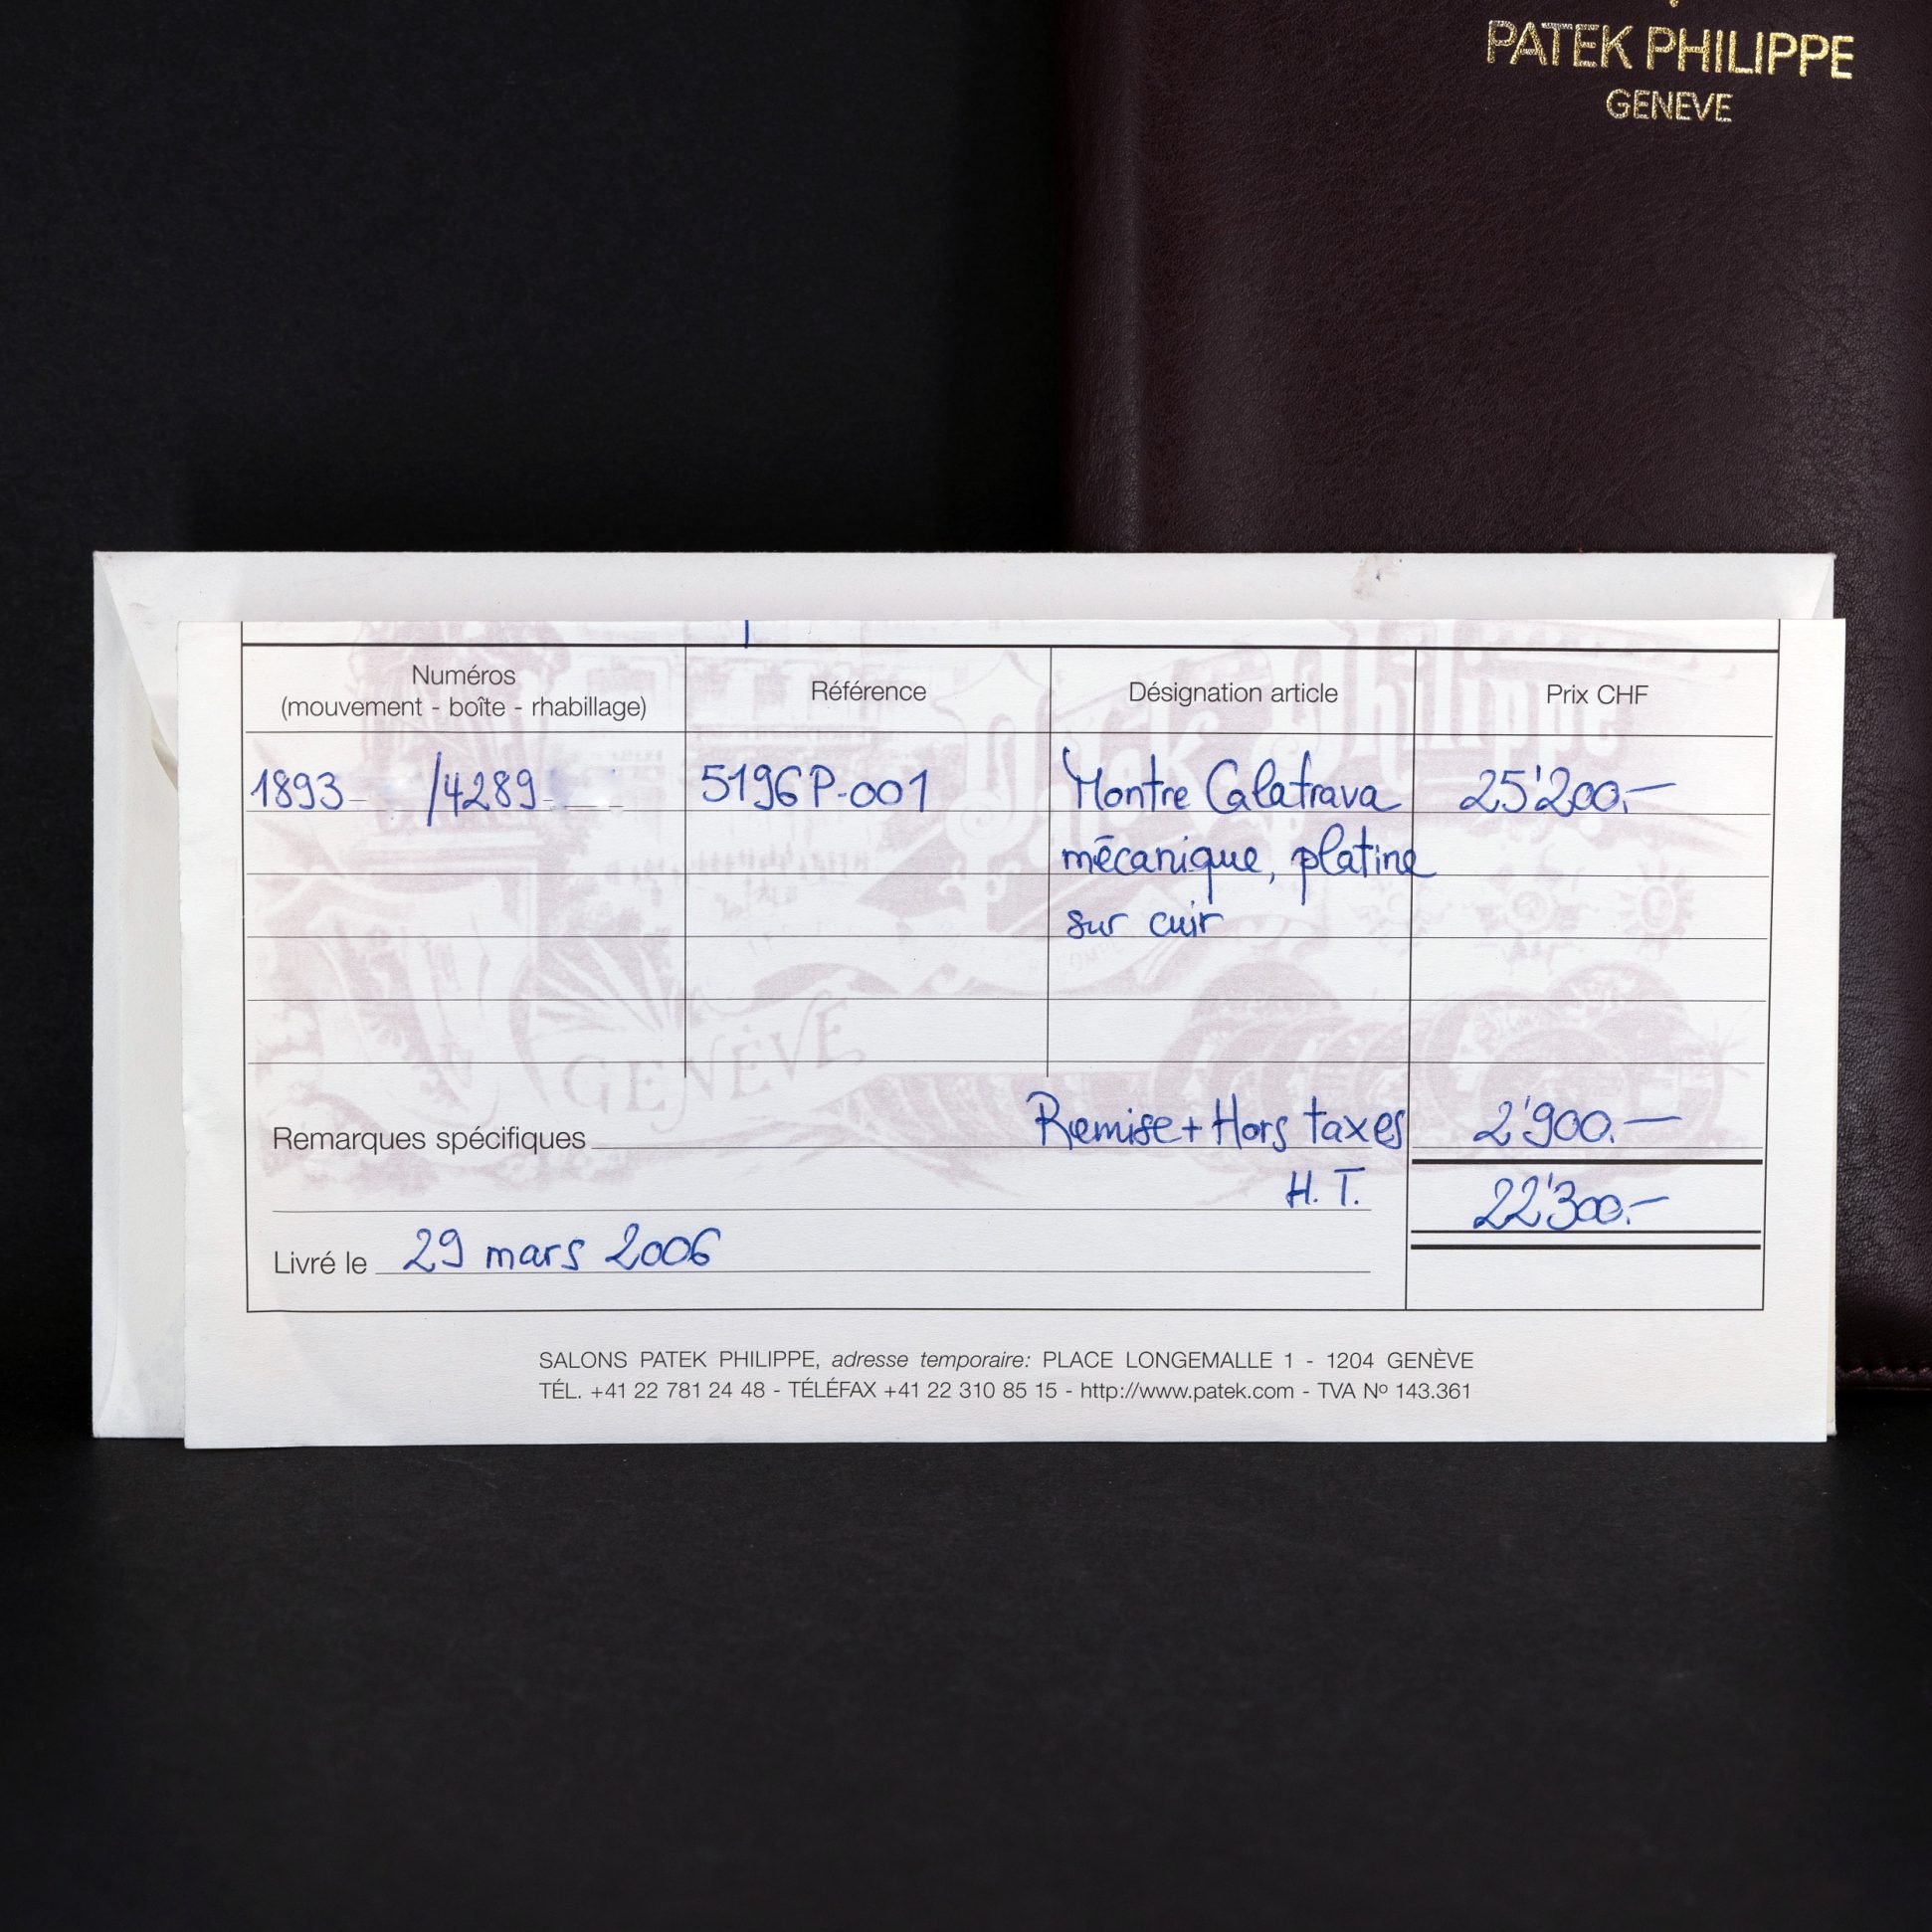 PATEK PHILIPPE
GENEVE
Numéros
(mouvement - boîte - rhabillage)
Référence
Désignation article
Prix CHF
1893 /4289
5196P-001
Montre Calatrava
25'200.—
mécanique, platine
sur cuir
Patek Philippe
GENÈVE
Remarques spécifiques
Remise + Hors taxes
2'900.—
H. T.
22'300.—
Livré le 29 mars 2006
SALONS PATEK PHILIPPE, adresse temporaire: PLACE LONGEMALLE 1 - 1204 GENÈVE
TÉL. +41 22 781 24 48 - TÉLÉFAX +41 22 310 85 15 - http://www.patek.com - TVA Nº 143.361